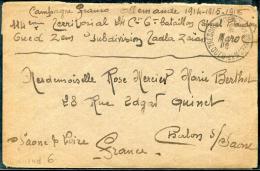 Campagne Franco Allemande 1914-1915-1916
114em Territorial 4e Cie 6e bataillon
Oued Zem Subdivision Tadla Zaian
Maroc
Mademoiselle Rose Mercier Marie Berthet
28 Rue Edgar Quinet
Chalon s/ Saone
Saone et Loire
France